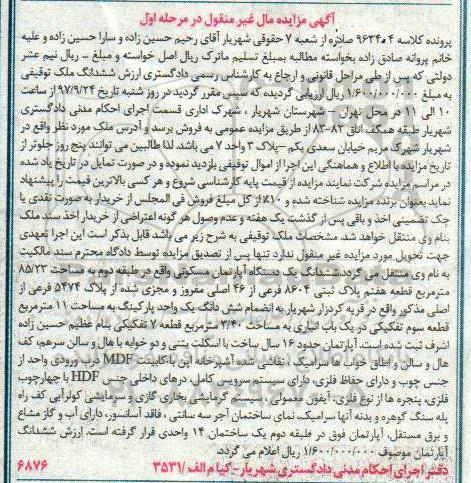 آگهی مزایده مال غیر منقول در مرحله اول
پرونده کلاسه ۹۶۳۴۰۴ صادره از شعبه ۷ حقوقی شهریار آقای رحیم حسین زاده و سارا حسین زاده و علیه
خانم پروانه صادق زاده بخواسته مطالبه بمبلغ تسلیم ماترک ریال اصل خواسته و مبلغ - ریال نیم عشر
دولتی که پس از طی مراحل قانونی و ارجاع به کارشناس رسمی دادگستری ارزش ششدانگ ملک توقیفی
به مبلغ ۱/۶۰۰/۰۰۰/۰۰۰ ریال ارزیابی گردیده که سپس مقرر گردید در روز شنبه تاریخ ۹۷/۹/۲۴ از ساعت
۱۰ الی ۱۱ در محل تهران - شهرستان شهریار، شهرک اداری قسمت اجرای احکام مدنی دادگستری
شهریار طبقه همکف اتاق ۸۲-۸۳ از طریق مزایده عمومی به فروش برسد و آدرس ملک مورد نظر واقع در
شهریار شهرک مریم خیابان سعدی یکم -پلاک ۳ واحد ۷ می باشد. لذا طالبین می توانند پنج روز جلوتر از
تاریخ مزایده با اطلاع و هماهنگی این اجرا از اموال توقیفی بازدید نموده و در صورت تمایل در تاریخ یاد شده
در مراسم مزایده شرکت نمایند مزایده از قیمت پایه کارشناسی شروع و هر کسی بالاترین قیمت را پیشنهاد
نماید بعنوان برنده مزایده شناخته شده و ۱۰٪ از کل مبلغ فروش فی المجلس از خریدار به صورت نقدی یا
چک تضمینی اخذ و باقی پس از گذشت یک هفته و عدم وصول هر گونه اعتراضی از خریدار اخذ سند ملک
بنام وی منتقل خواهد شد. مشخصات ملک توقیفی به شرح زیر می باشد. قابل بذکر است این اجرا تعهدی
جهت تحویل مورد مزایده غیر منقول ندارد تنها پس از تصدیق مزایده توسط دادگاه محترم سند مالکیت
به نام وی منتقل می گردد.ششدانگ یک دستگاه آپارتمان مسکونی واقع در طبقه دوم به مساحت ۸۵/۲۲
مترمربع قطعه هفتم پلاک ثبتی ۸۶۰۴ فرعی از ۴۶ اصلی مفروز و مجزی شده از پلاک ۵۴۷۴ فرعی از
اصلی مذکور واقع در قریه کردزار شهریار به انضمام شش دانگ یک واحد پارکینگ به مساحت ۱۱ مترمربع
قطعه سوم تفکیکی در یک باب انباری به مساحت ۳/۴۰ مترمربع قطعه ۷ تفکیکی بنام عظیم حسین زاده
اشرف ثبت شده است. آپارتمان حدود ۱۶ سال ساخت با اسکلت بتنی و دو خوابه با هال و سالن سرهم، کف
هال و سالن و اطاق خواب ها سرامیک، نقاشی شده آشپزخانه اپن با کابینت MDF درب ورودی واحد از
جنس چوب و دارای حفاظ فلزی، دارای سیستم سرویس کامل، درهای داخلی جنس HDF با چهارچوب
فلزی، پنجره ها از نوع فلزی، آیفون معمولی، سیستم گرمایشی بخاری گازی و سرمایشی کولرآبی کف راه
پله سنگ گوهره و بدنه آنها سرامیک، نمای ساختمان آجر سه سانتی، فاقد آسانسور، دارای آب و گاز مشاع
و برق مستقل، آپارتمان فوق در طبقه دوم یک ساختمان ۱۴ واحدی قرار گرفته است. ارزش ششدانگ
آپارتمان موصوف ۱/۶۰۰/۰۰۰/۰۰۰ ریال اعلام می گردد.
دفتر اجرای احکام مدنی دادگستری شهریار- کیا م الف /۳۵۳۱ ۶۸۷۶